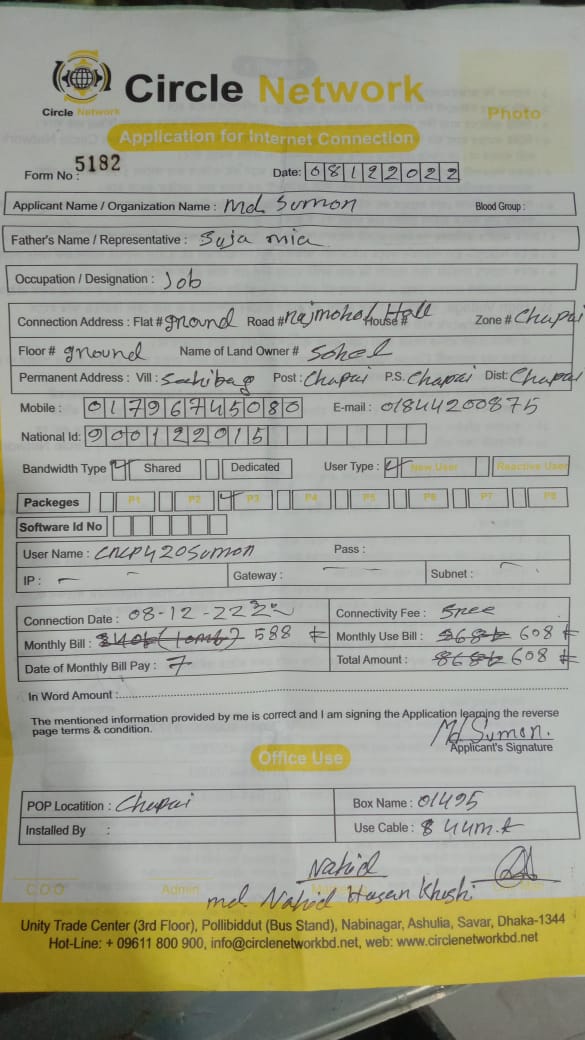 Circle Network
Circle Network
Photo
Application for Internet Connection
Form No : 5182
Date: 08122022
Applicant Name / Organization Name : Md. Sumon Blood Group :
Father's Name / Representative : Suja mia
Occupation / Designation : Job
Connection Address : Flat # ground Road # najmohol Hall House # Zone # Chapai
Floor # ground Name of Land Owner # Sohel
Permanent Address : Vill : Sahibag Post : Chapai P.S. Chapai Dist: Chapai
Mobile : 01796745080 E-mail : 01844200875
National Id: 900122015
Bandwidth Type Shared Dedicated User Type : New User Reactive User
Packeges P1 P2 P3 P4 P5 P6 P7 P8
Software Id No
User Name : CNCP420Sumon Pass :
IP : – – Gateway : – – Subnet :
Connection Date : 08-12-22 Connectivity Fee : Free
Monthly Bill : 588 ৳ Monthly Use Bill : 608 ৳
Date of Monthly Bill Pay : 7 Total Amount : 608 ৳
In Word Amount :
The mentioned information provided by me is correct and I am signing the Application learning the reverse
page terms & condition.
Md Sumon.
Applicant's Signature
Office Use
POP Locatition : Chapai Box Name : 01495
Installed By : Use Cable : 8 44m.t
Nahid
C.O.O Admin
md. Nahid Hasan Khushi
Unity Trade Center (3rd Floor), Pollibiddut (Bus Stand), Nabinagar, Ashulia, Savar, Dhaka-1344
Hot-Line: + 09611 800 900, info@circlenetworkbd.net, web: www.circlenetworkbd.net